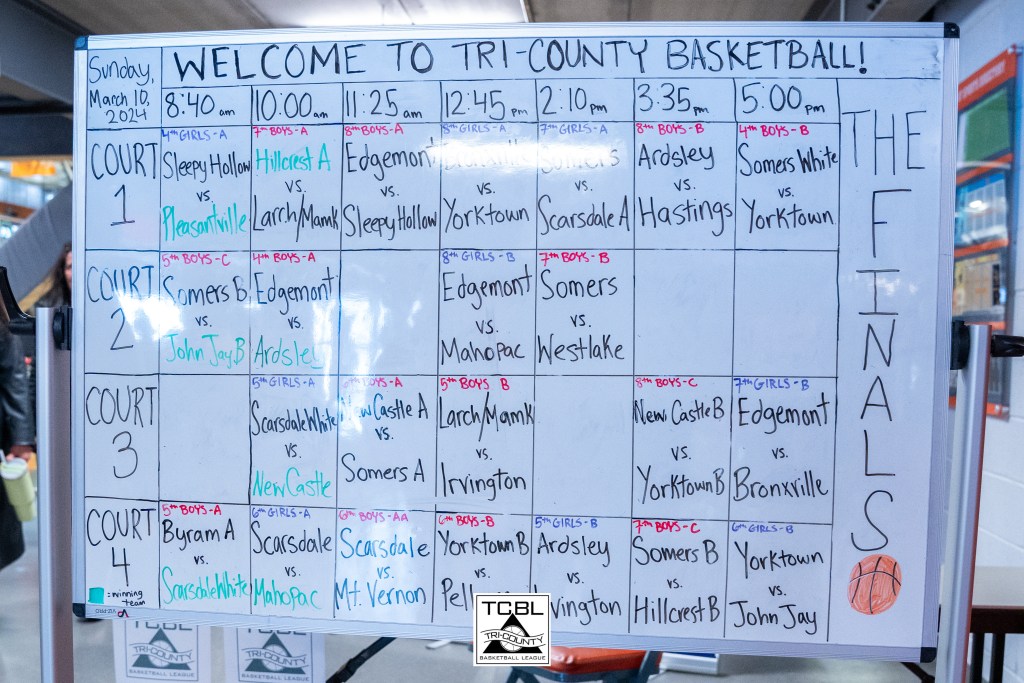 Sunday, March 10, 2024
WELCOME TO TRI-COUNTY BASKETBALL!
8:40 am 10:00 am 11:25 am 12:45 pm 2:10 pm 3:35 pm 5:00 pm
THE FINALS
COURT 1
4th GIRLS-A
Sleepy Hollow
vs.
Pleasantville
7th BOYS-A
Hillcrest A
vs.
Larch/Mamk
8th BOYS-A
Edgemont
vs.
Sleepy Hollow
8th GIRLS-A
vs.
Yorktown
7th GIRLS-A
Somers
vs.
Scarsdale A
8th BOYS-B
Ardsley
vs.
Hastings
4th BOYS-B
Somers White
vs.
Yorktown
COURT 2
5th BOYS-C
Somers B
vs.
John Jay B
4th BOYS-A
Edgemont
vs.
Ardsley
8th GIRLS-B
Edgemont
vs.
Mahopac
7th BOYS-B
Somers
vs.
Westlake
COURT 3
5th GIRLS-A
Scarsdale White
vs.
New Castle
6th BOYS-A
New Castle A
vs.
Somers A
5th BOYS B
Larch/Mamk
vs.
Irvington
8th BOYS-C
New Castle B
vs.
Yorktown B
7th GIRLS-B
Edgemont
vs.
Bronxville
COURT 4
= winning team
5th BOYS-A
Byram A
vs.
Scarsdale White
6th GIRLS-A
Scarsdale
vs.
Mahopac
6th BOYS-AA
Scarsdale
vs.
Mt. Vernon
6th BOYS-B
Yorktown B
vs.
5th GIRLS-B
Ardsley
vs.
Irvington
7th BOYS-C
Somers B
vs.
Hillcrest B
6th GIRLS-B
Yorktown
vs.
John Jay
TCBL
TRI-COUNTY
BASKETBALL LEAGUE
TCBL
TRI-COUNTY
BASKETBALL LEAGUE
TCBL
TRI-COUNTY
BASKETBALL LEAGUE